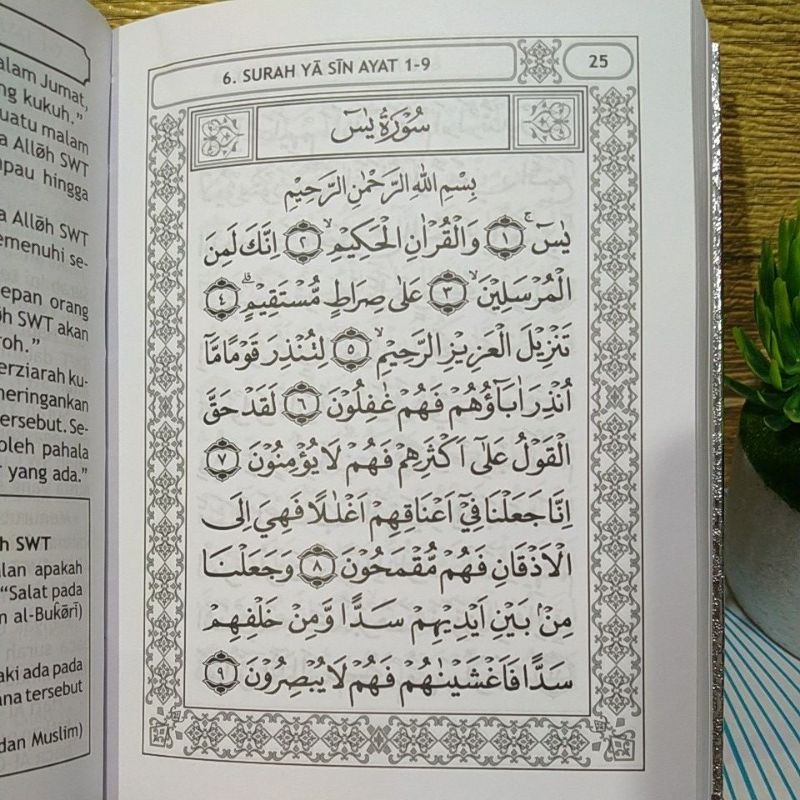 alam Jumat,
ng kukuh."
uatu malam
a Allōh SWT
pau hingga
a Allōh SWT
emenuhi se-
epan orang
ōh SWT akan
roh."
erziarah ku-
meringankan
tersebut. Se-
oleh pahala
yang ada."
h SWT
lan apakah
"Salat pada
n al-Bukōrī)
aki ada pada
ana tersebut
dan Muslim)
6. SURAH YĀ SĪN AYAT 1-9
25
سُوْرَةُ يٰسٓ
بِسْمِ اللهِ الرَّحْمٰنِ الرَّحِيْمِ
يٰسٓ ۚ ١ وَالْقُرْاٰنِ الْحَكِيْمِ ۙ ٢ اِنَّكَ لَمِنَ
الْمُرْسَلِيْنَ ۙ ٣ عَلٰى صِرَاطٍ مُّسْتَقِيْمٍ ۗ ٤
تَنْزِيْلَ الْعَزِيْزِ الرَّحِيْمِ ۙ ٥ لِتُنْذِرَ قَوْمًا مَّآ
اُنْذِرَ اٰبَاۤؤُهُمْ فَهُمْ غٰفِلُوْنَ ٦ لَقَدْ حَقَّ
الْقَوْلُ عَلٰٓى اَكْثَرِهِمْ فَهُمْ لَا يُؤْمِنُوْنَ ٧
اِنَّا جَعَلْنَا فِيْٓ اَعْنَاقِهِمْ اَغْلٰلًا فَهِيَ اِلَى
الْاَذْقَانِ فَهُمْ مُّقْمَحُوْنَ ٨ وَجَعَلْنَا
مِنْۢ بَيْنِ اَيْدِيْهِمْ سَدًّا وَّمِنْ خَلْفِهِمْ
سَدًّا فَاَغْشَيْنٰهُمْ فَهُمْ لَا يُبْصِرُوْنَ ٩